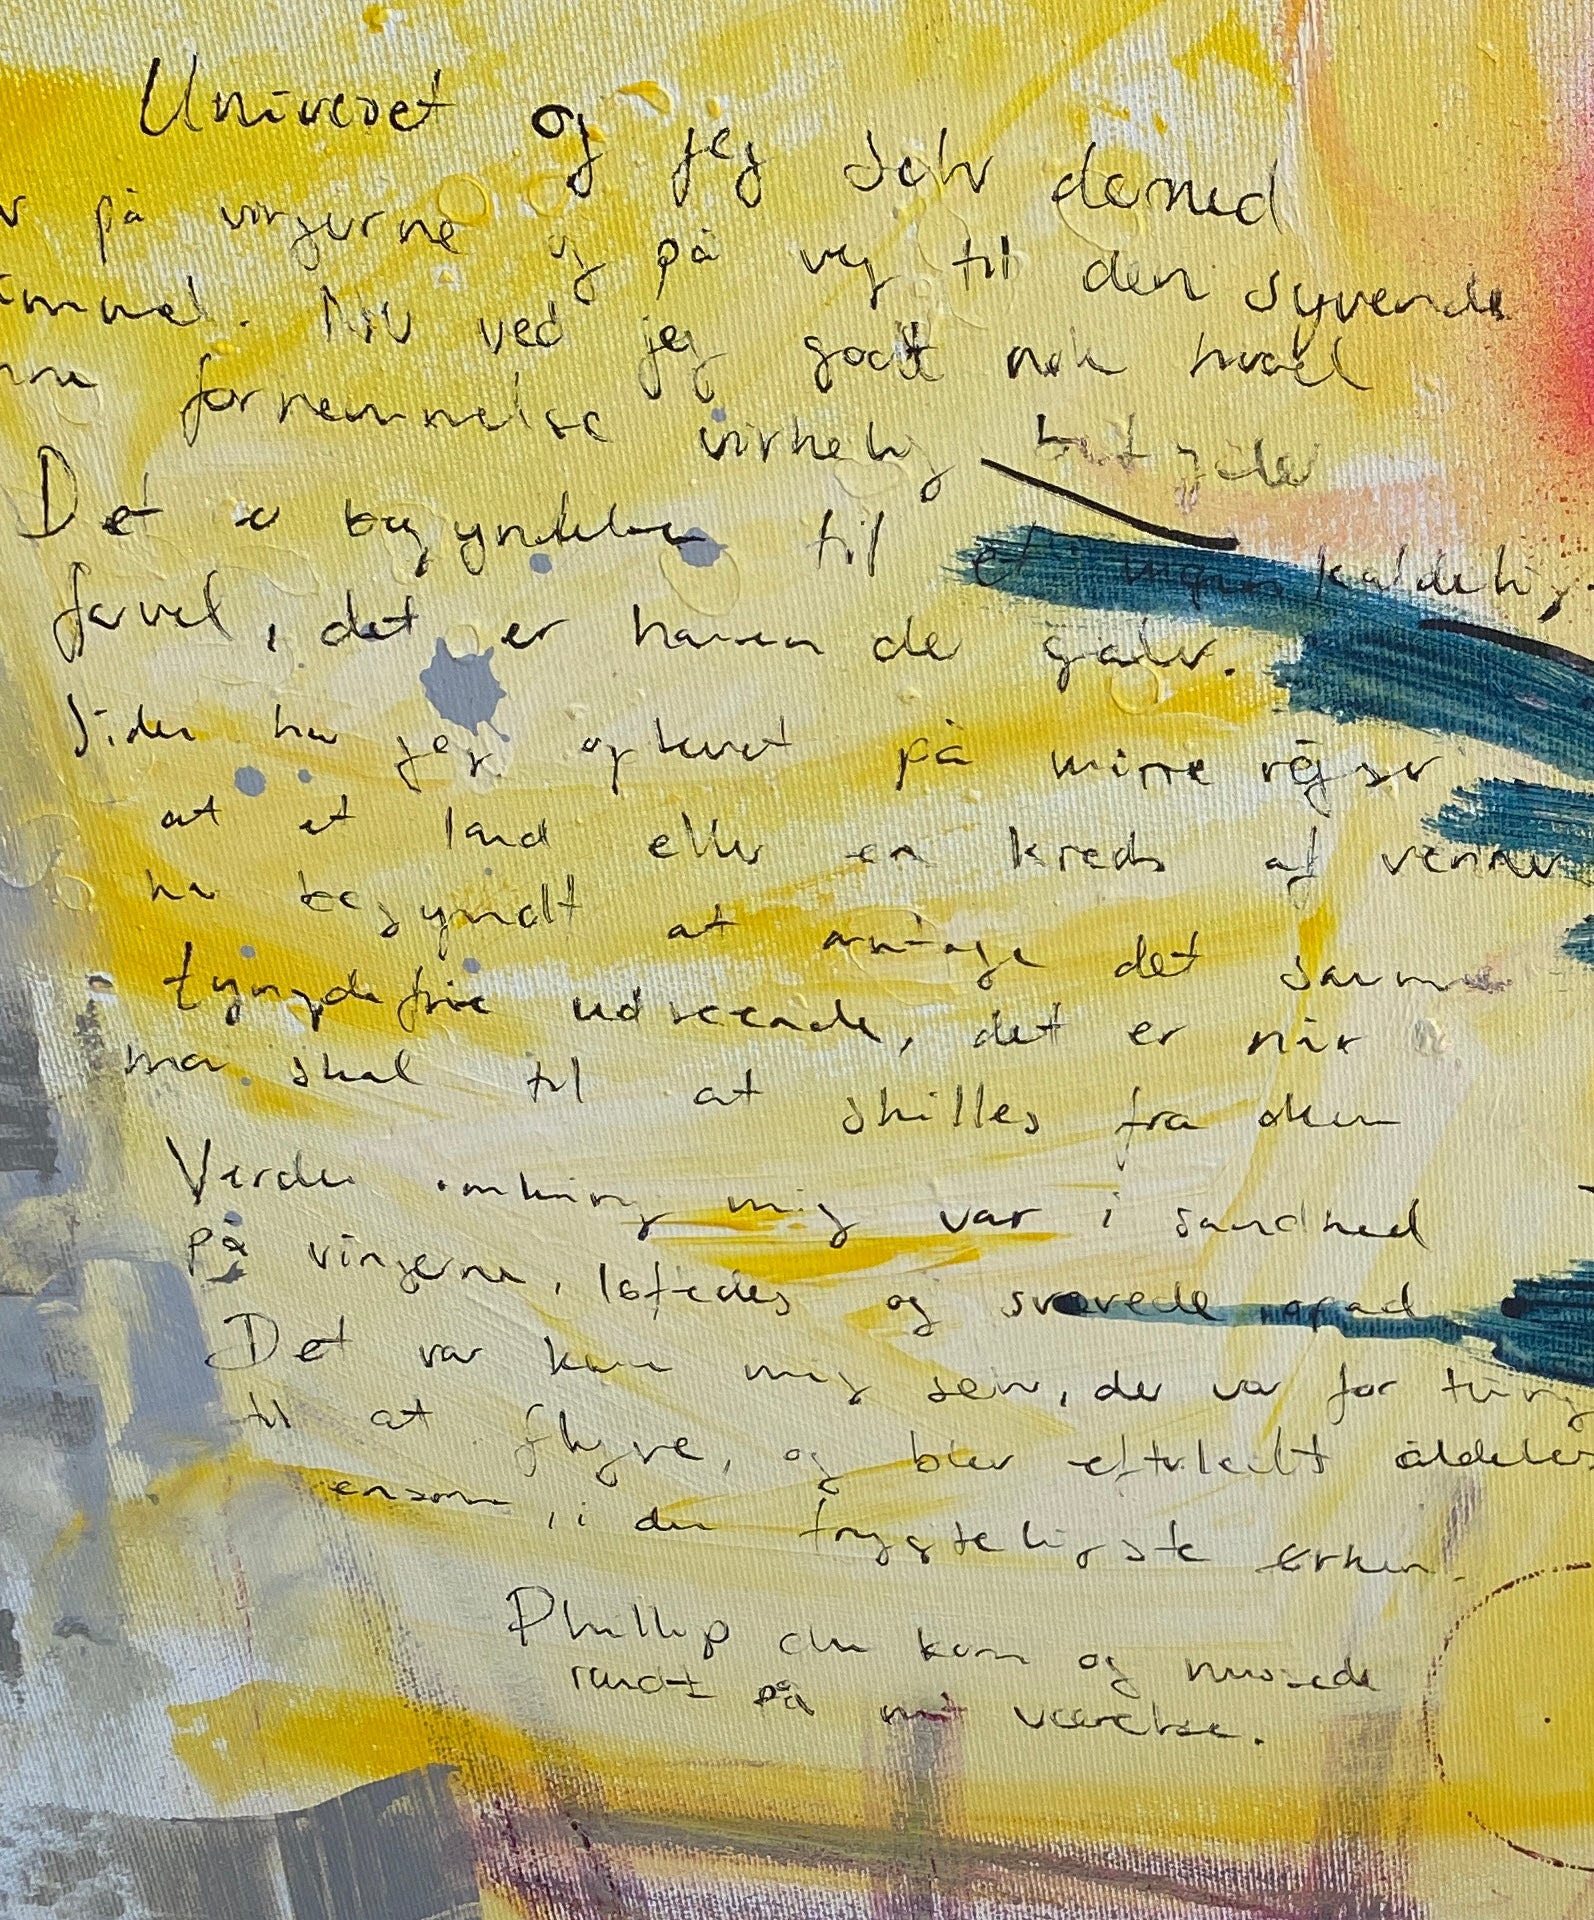 Universet og jeg selv dermed
på vingerne og på vej til den syvende
immel. Nu ved jeg godt nok hvad
fornemmelse virkelig betyder
Det er begyndelsen til et uigenkaldelig
farvel, det er haven de gælv.
Siden har jeg oplevet på mine rejser
at et land eller en kreds af venner
har begyndt at antage det samme
tyngdefrie udseende, det er når
man skal til at skilles fra dem
Verden omkring mig var i sandhed
på vingerne, løftedes og svævede opad
Det var kun mig selv, der var for tung
til at flyve, og blev efterladt aldeles
ensom, i den frygteligste ørken.
Phillip du kom og nussede
rundt på mit værelse.